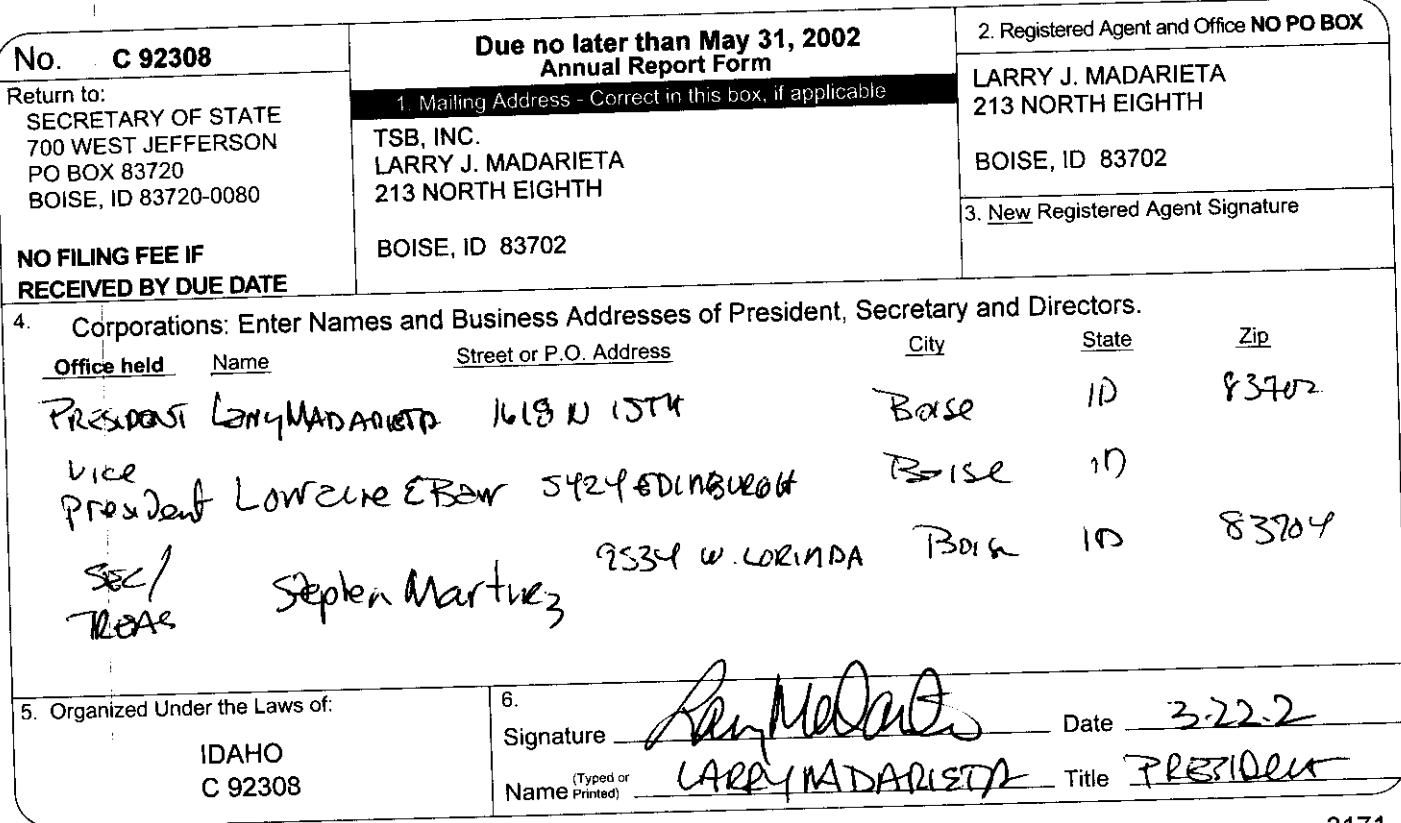 No. C 92308
Return to:
SECRETARY OF STATE
700 WEST JEFFERSON
PO BOX 83720
BOISE, ID 83720-0080
NO FILING FEE IF
RECEIVED BY DUE DATE
Due no later than May 31, 2002
Annual Report Form
1. Mailing Address - Correct in this box, if applicable
TSB, INC.
LARRY J. MADARIETA
213 NORTH EIGHTH
BOISE, ID 83702
2. Registered Agent and Office NO PO BOX
LARRY J. MADARIETA
213 NORTH EIGHTH
BOISE, ID 83702
3. New Registered Agent Signature
4. Corporations: Enter Names and Business Addresses of President, Secretary and Directors.
Office held Name Street or P.O. Address City State Zip
PRESIDENT Larry MADARIETA 1618 N 15TH Boise ID 83702
Vice
President 5424 EDINBURGH Boise ID
SEC/
TREAS Stephen Martinez 9534 W. LORINDA Boise ID 83704
5. Organized Under the Laws of:
IDAHO
C 92308
6.
Signature Larry Madarieta Date 3-22-2
Name (Typed or Printed) LARRY MADARIETA Title PRESIDENT